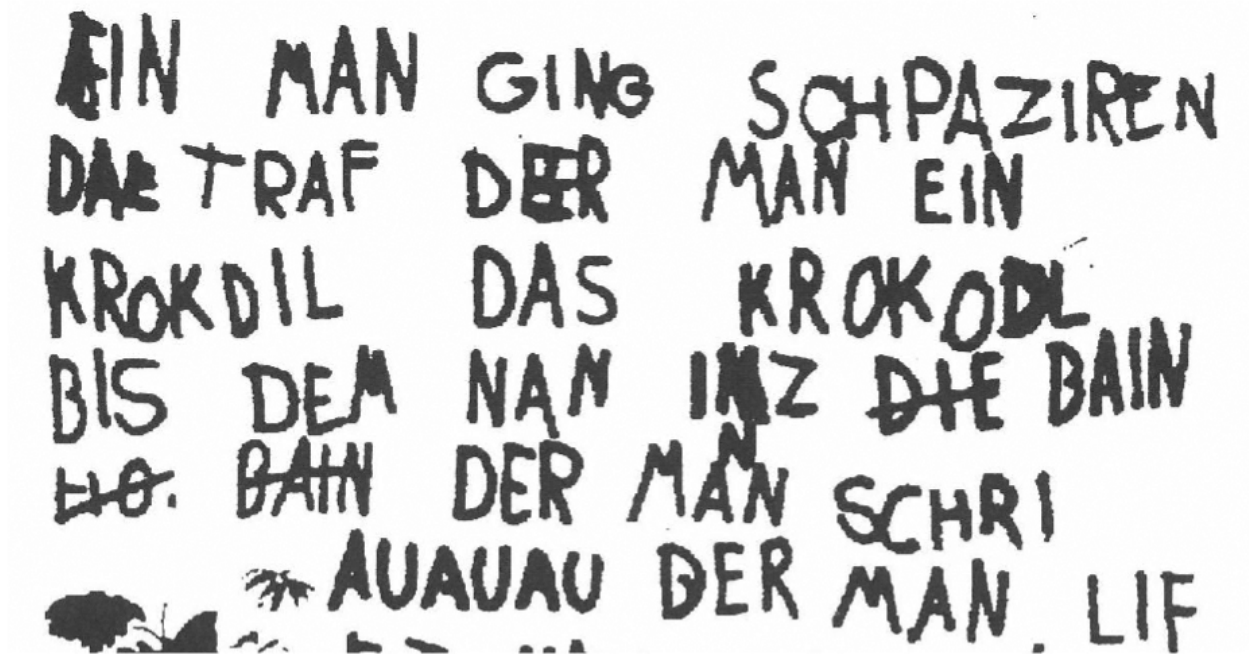 EIN MAN GING SCHPAZIREN
DA TRAF DER MAN EIN
KROKDIL DAS KROKODL
BIS DEM NAN INZ DIE BAIN
BAIN DER MAN SCHRI
AUAUAU DER MAN. LIF